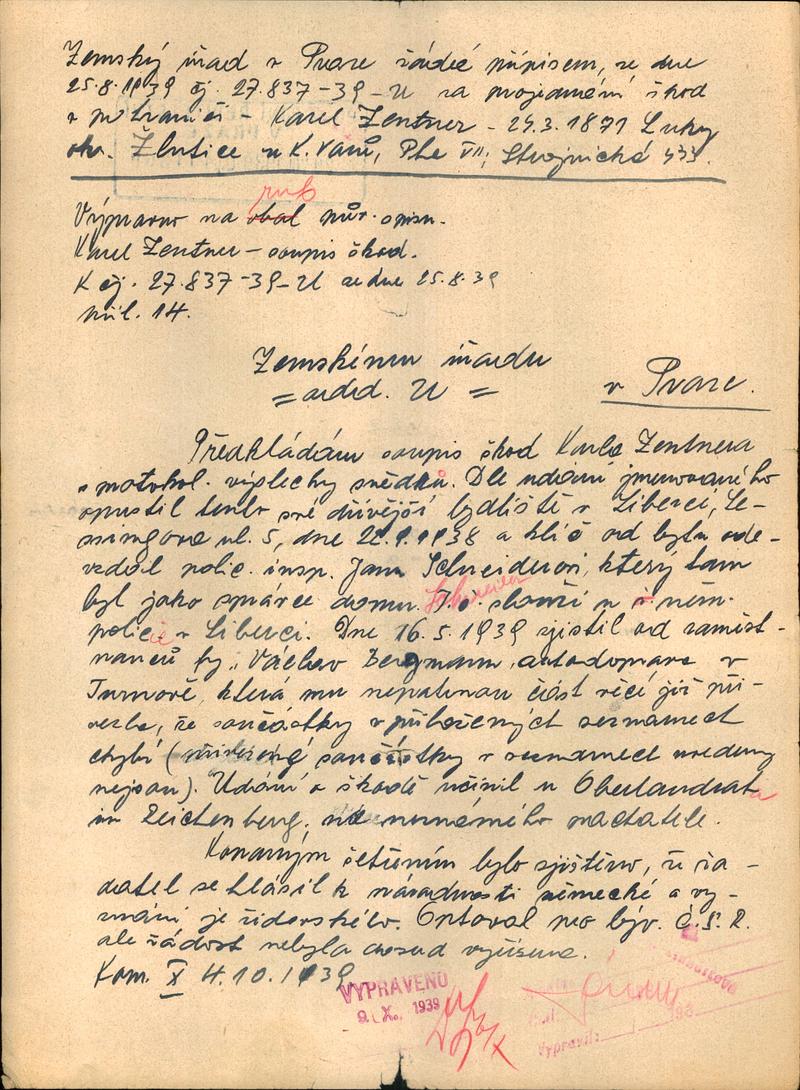 Zemský úřad v Praze žádá přípisem, ze dne
25.8.1939 čj. 27.837-39-U za projednání škod
v pohraničí - Karel Zentner - 29.3.1871 Luky
okr. Žlutice u K. Varů, Pha VII, Strojnická
rub
Vypraveno na obal opisu.
Karel Zentner - soupis škod.
K čj. 27.837-39-U ze dne 25.8.39
příl. 14.
Zemskému úřadu
= odděl. U =
v Praze.
Předkládám soupis škod Karla Zentnera
s protokol. výslechy svědků. Dle udání jmenovaného
opustil tento své dřívější bydliště v Liberci, Le-
ssingova ul. 5, dne 1938 a klíč od bytu ode-
vzdal polic. insp. Janu Schneiderovi, který tam
byl jako správce domu. slouží u něm.
policie v Liberci. Dne 16.5.1939 zjistil od zaměst-
nanců fy. Václav Bergmann, autodoprava v
Turnově, která mu nepatrnou část věcí již při-
vezla, že součástky v přiložených seznamech
chybí (přivezené součástky v seznamech uvedeny
nejsou). Udání o škodě učinil u Oberlandrata
in Reichenberg, na neznámého pachatele.
Konaným šetřením bylo zjištěno, že ža-
datel se hlásil k národnosti německé a vy-
znání je židovského. Optoval pro býv. Č.S.R.
ale žádost nebyla dosud vyřízena.
Kom. X 4.10.1939
VYPRAVENO
9. X. 1939
Vypravil: 193